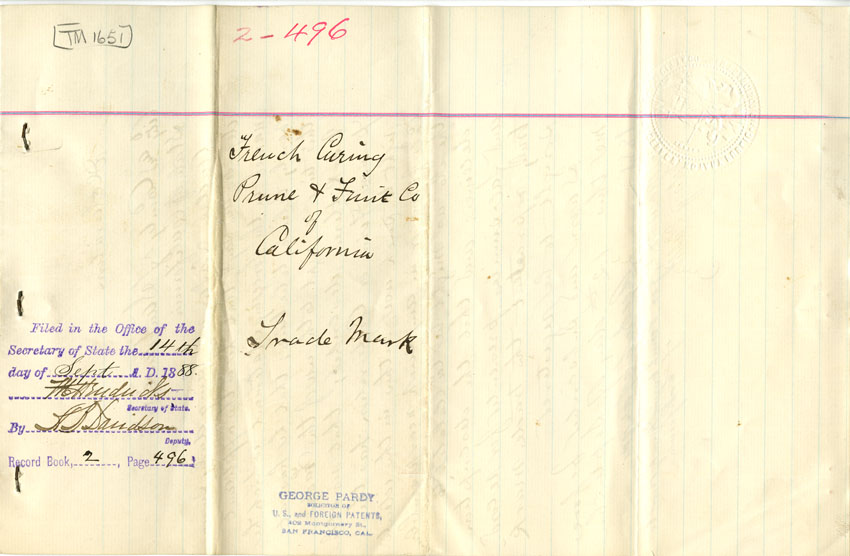 TM 1651
2-496
French Curing
Prune & Fruit Co
of
California
Trade Mark
Filed in the Office of the
Secretary of State the 14th
day of Sept A. D. 1888.
Secretary of State.
By Davidson
Deputy.
Record Book, 2, Page 496
GEORGE PARDY
SOLICITOR OF
U. S., and FOREIGN PATENTS,
409 Montgomery St.,
SAN FRANCISCO, CAL.